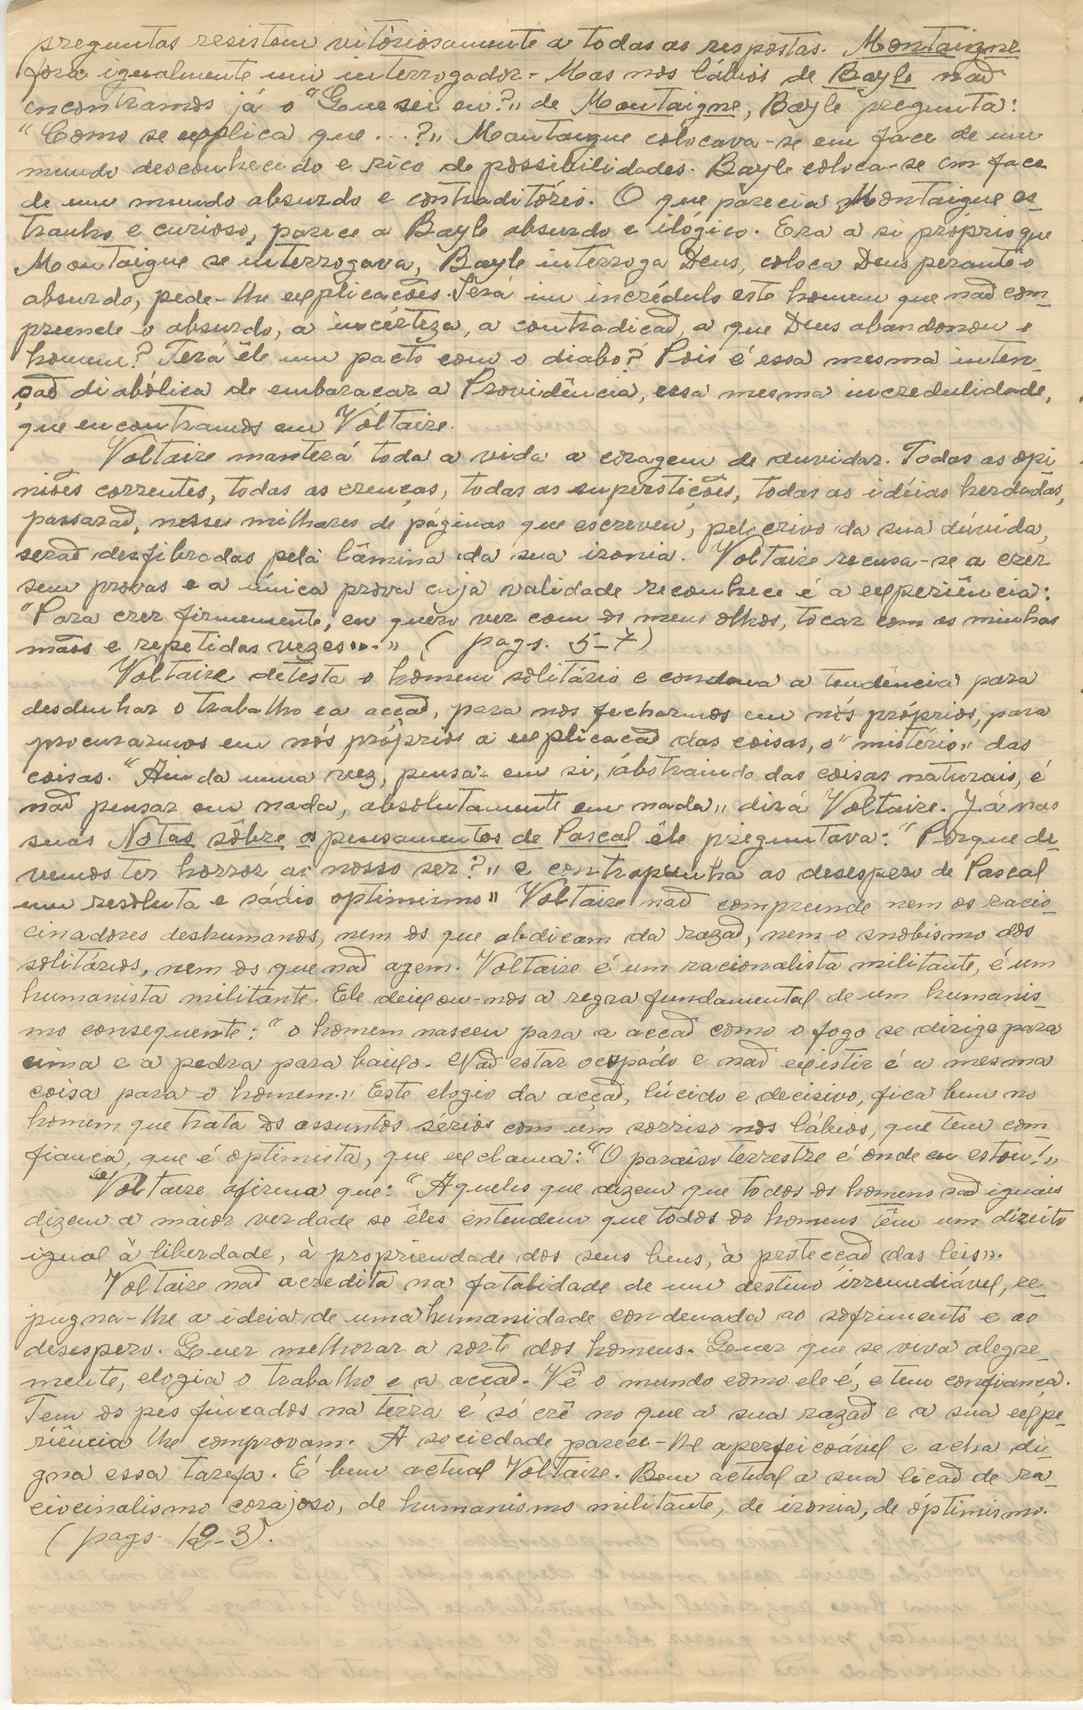 preguntas resistem vitóriosamente a todas as respostas. Montaigne
fora igualmente um interrogador - Mas nos lábios de Bayle naõ
encontramos já o "Que sei eu?" de Montaigne, Bayle pregunta:
"Como se explica que ...?" Montaigne colocava-se em face de um
mundo desconhecido e rico de possibilidades. Bayle coloca-se em face
de um mundo absurdo e contraditório. O que parecia Montaigne es-
tranho e curioso, parece a Bayle absurdo e ilógico. Era a si próprio que
Montaigne se interrogava, Bayle interroga Deus, coloca Deus perante o
absurdo, pede-lhe explicações. Será um incrédulo este homem que naõ com-
preende o absurdo, a incerteza, a contradiçaõ, a que Deus abandonou o
homem? Terá êle um pacto com o diabo? Pois é essa mesma inten-
çaõ diabólica de embaraçar a Providência, essa mesma incredulidade,
que encontramos em Voltaire.
Voltaire manterá toda a vida a coragem de duvidar. Todas as opi-
niões correntes, todas as crenças, todas as superstições, todas as idéias herdadas,
passaraõ, nesses milhares de páginas que escreveu, pelo crivo da sua dúvida,
seraõ desfibradas pela lâmina da sua ironia. Voltaire recusa-se a crer
sem provas e a única prova cuja validade reconhece é a experiência:
"Para crer firmemente, eu quero ver com os meus olhos, tocar com as minhas
maõs e repetidas vezes..." (pags. 5-7)
Voltaire detesta o homem solitário e condena a tendência para
desdenhar o trabalho e a acçaõ, para nos fecharmos em nós próprios, para
procurarmos em nós próprios a explicaçaõ das coisas, o "mistério" das
coisas. "Ainda uma vez, pensar em si, abstraindo das coisas naturais, é
naõ pensar em nada, absolutamente em nada" dirá Voltaire. Já nas
suas Notas sôbre os pensamentos de Pascal êle preguntava: "Porque de-
vemos ter horror ao nosso ser?" e contrapunha ao desespero de Pascal
um resoluto e sádio optimismo" Voltaire naõ compreende nem os racio-
cinadores deshumanos, nem os que abdicam da razaõ, nem o snobismo dos
solitários, nem os que naõ agem. Voltaire é um racionalista militante, é um
humanista militante. Ele deixou-nos a regra fundamental de um humanis-
mo consequente: "o homem nasceu para a acçaõ como o fogo se dirige para
cima e a pedra para baixo. Naõ estar ocupado e naõ existir é a mesma
coisa para o homem." Este elogio da acçaõ, lúcido e decisivo, fica bem no
homem que trata os assuntos sérios com um sorriso nos lábios, que tem con-
fiança, que é optimista, que exclama: "O paraiso terrestre é onde eu estou!"
Voltaire afirma que: "Aqueles que dizem que todos os homens saõ iguais
dizem a maior verdade se êles entendem que todos os homens têm um direito
igual à liberdade, à propriendade dos seus bens, à protecçaõ das leis".
Voltaire naõ acredita na fatalidade de um destino irremediável, re-
pugna-lhe a ideia de uma humanidade condenada ao sofrimento e ao
desespero. Quer melhorar a sorte dos homens. Quer que se viva alegre-
mente, elogia o trabalho e a acçaõ. Vê o mundo como ele é, e tem confiança.
Tem os pes fincados na terra e só crê no que a sua razaõ e a sua expe-
riência lhe comprovam. A sociedade parece-lhe aperfeiçoável e acha di-
gna essa tarefa. É bem actual Voltaire. Bem actual a sua liçaõ de ra-
ciocinalismo corajoso, de humanismo militante, de ironia, de óptimismo.
(pags. 12-3).